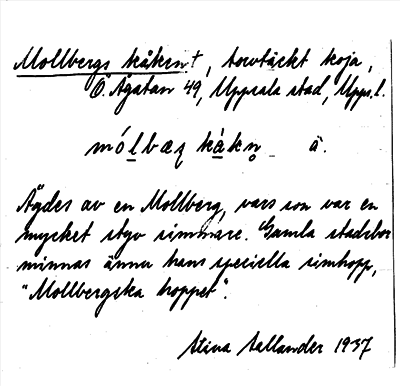 Mollbergs kåken†, torvtäckt koja,
Ö. Ågatan 49, Uppsala stad, Upps. l.
mólbæʂ kàkn̥ ä.
Ägdes av en Mollberg, vars son var en
mycket styv simmare. Gamla stadsbor
minnas ännu hans speciella simhopp,
"Mollbergska hoppet".
Stina Sallander 1937